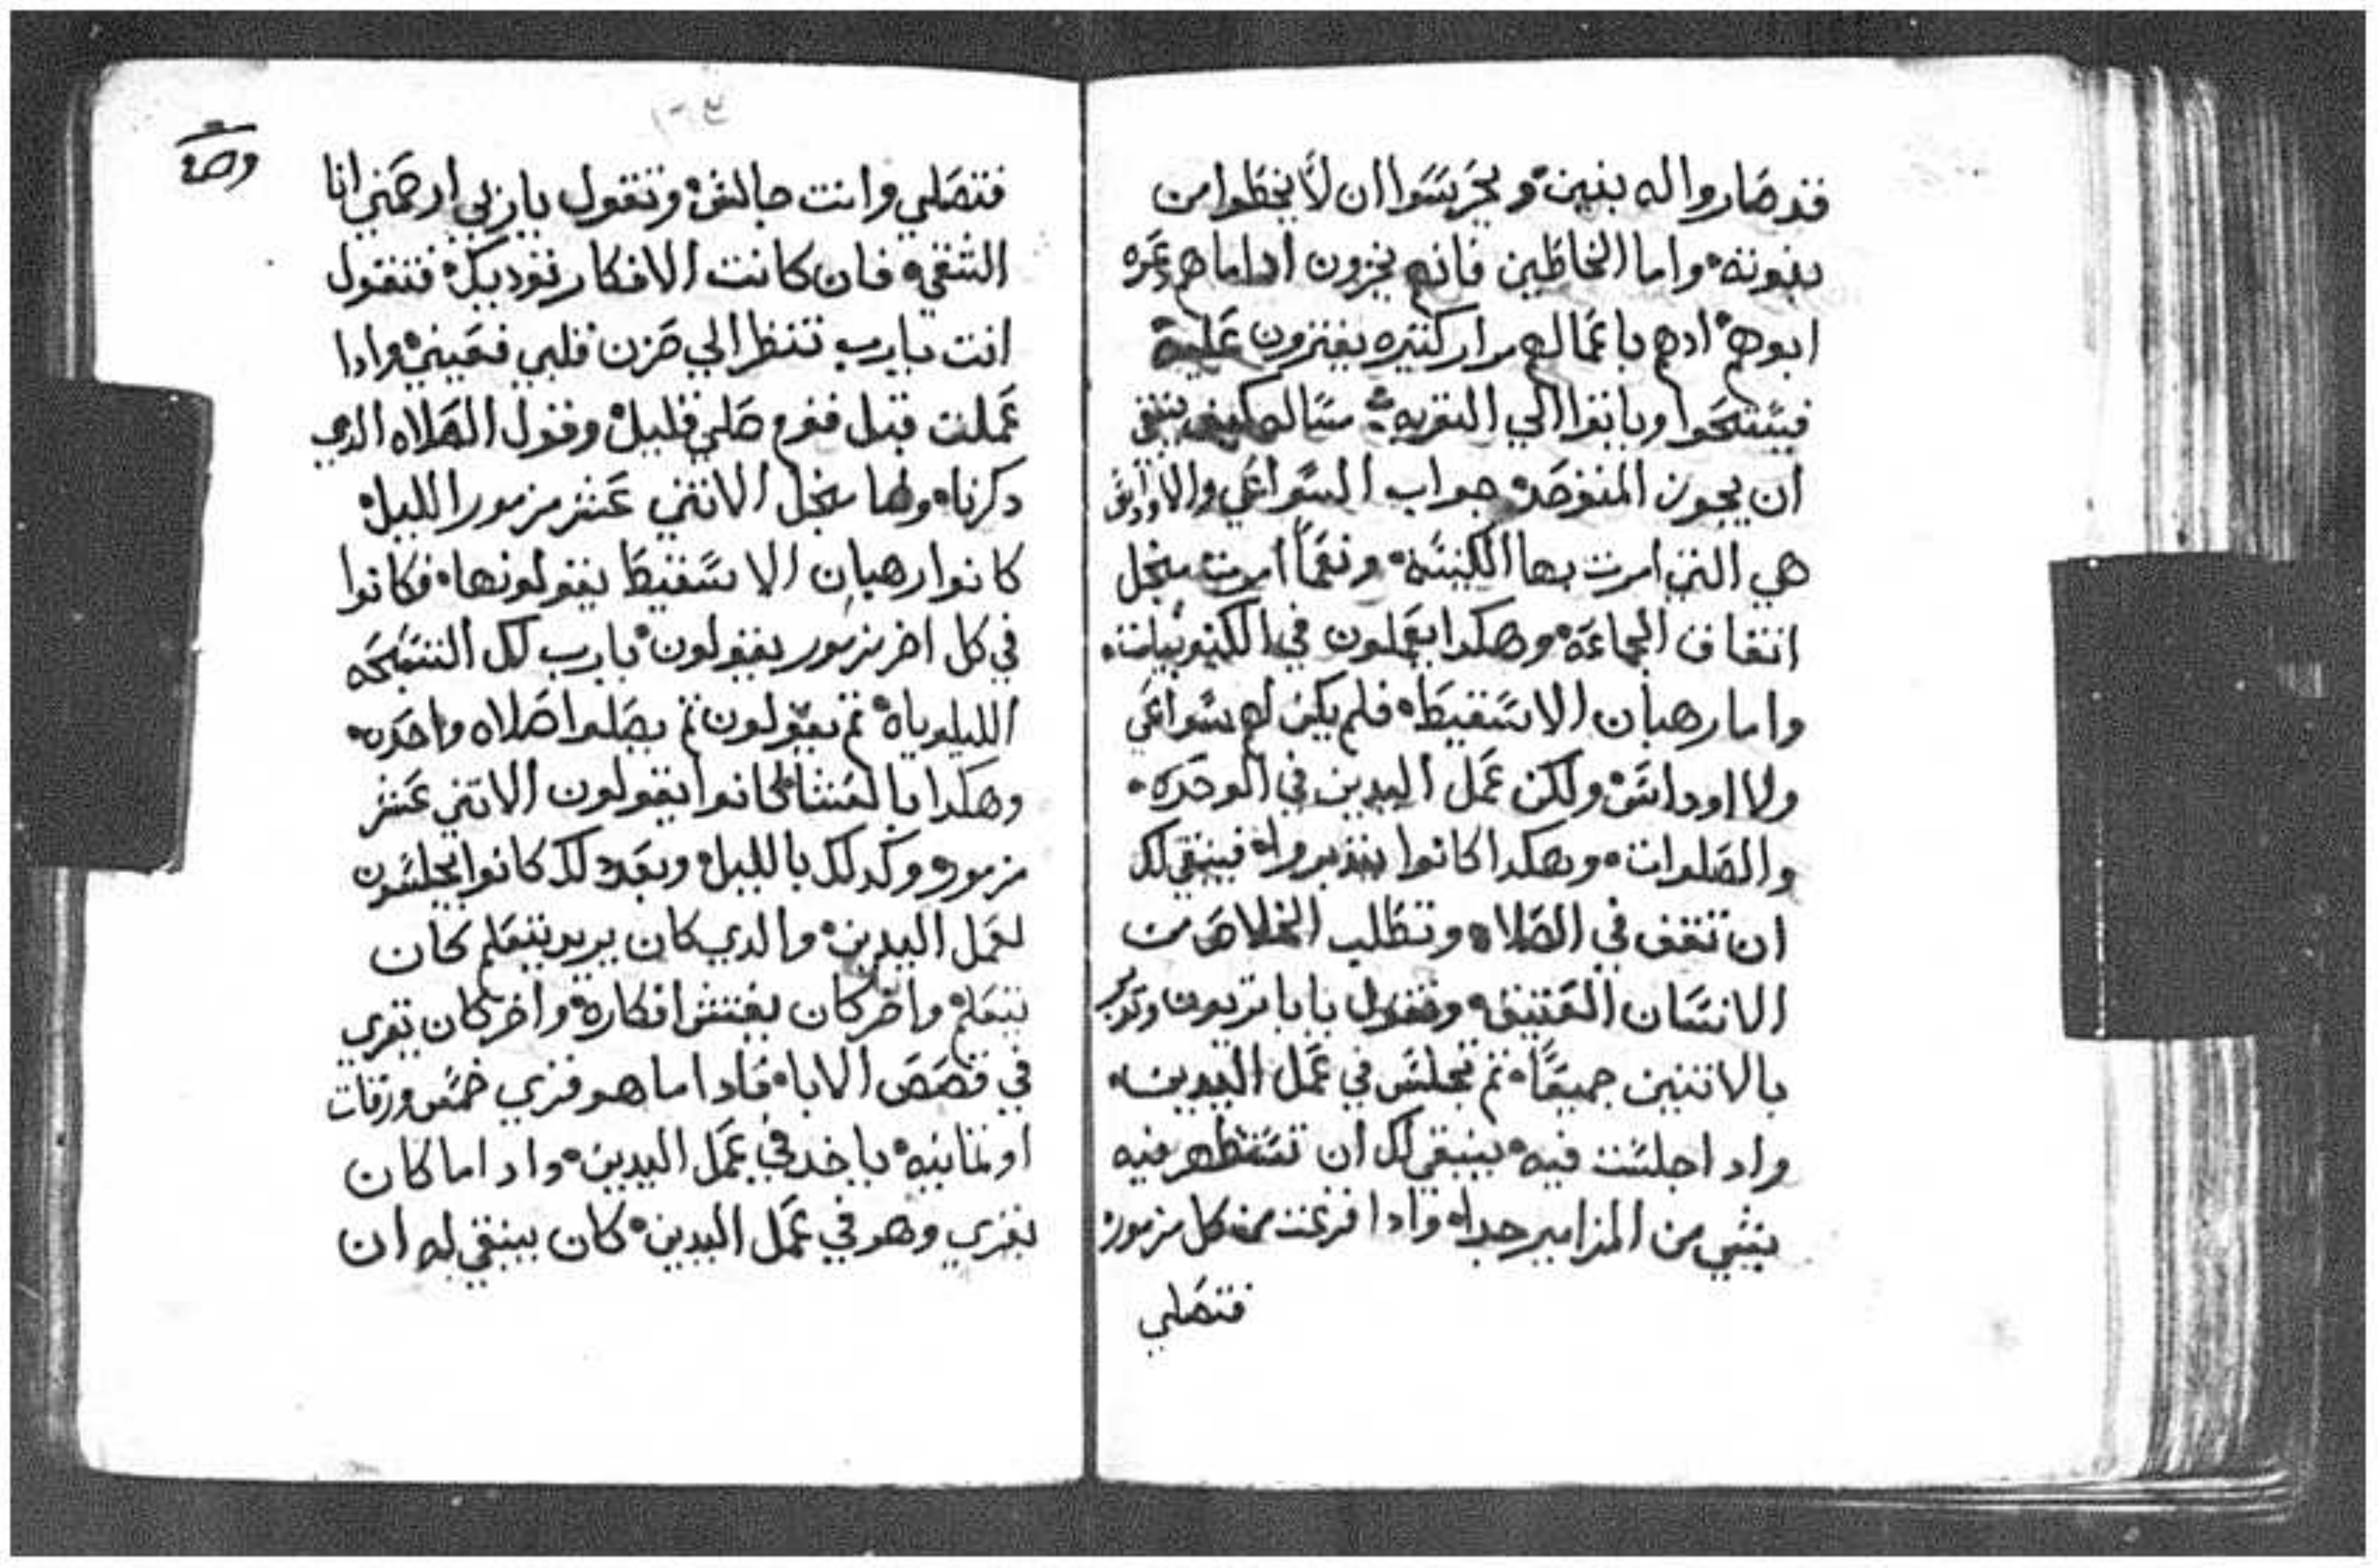 قد صاروا له بنين. ويحرسوا ان لا يخطوا من
بنوته. واما الخاطين فانهم يخزون اداما هم دعوه
ابوهم. ادهم باعمالهم مرار كتيره يفترون عليه
فيستحوا وياتوا الي التوبه. سال كيف ينبغي
ان يجوز المتوحد. جواب السواعي والاوداش
هي التي امرت بها الكنيسه. ونعما امرت بنجل
اتفاق الجماعه. وهكدا يعملون في الكنوبيات.
واما رهبان الاسقيط. فلم يكن لهم سواعي
ولا اوداش. ولكن عمل اليدين في الوحده.
والصلوات. وهكدا كانوا يتدبروا. فينبغي لك
ان تقف في الصلاه وتطلب الخلاص من
الانسان العتيق. وتقول يا ابا تريون وتدبر
بالاتنين جميعا. تم تجلس في عمل اليدين.
وادا جلست فيه. ينبغي لك ان تستظهر فيه
بشي من المزامير جدا. وادا فرغت من كل مزمور.
فتصلي
٢٠٤
فتصلي وانت جالس. وتقول يا ربي ارحمني انا
الشقي. فان كانت الافكار توديك. فتقول
انت يا رب تنظر الي حزن قلبي فعيني. وادا
عملت قبل فقوم صلي قليل. وقول الصلاه الدي
دكرناه. ولما بنجل الاتني عشر مزمور الليل.
كانوا رهبان الاسقيط يقولونها. فكانوا
في كل اخر مزمور يقولون. يا رب لك التسبحه
الليلوياه. تم يقولون تم يصلوا صلاه واحده.
وهكدا بالعشا كانوا يقولون الاتني عشر
مزمور. وكدلك بالليل. وبعد دلك كانوا يجلسون
لعمل اليدين. والدي كان يريد يتعلم كان
يتعلم. واخر كان يفتش افكاره. واخر كان يقري
في قصص الابا. فادا ما هو قري خمس ورقات
او تمانيه. ياخد في عمل اليدين. وادا ما كان
يقري وهو في عمل اليدين. كان ينبغي له ان